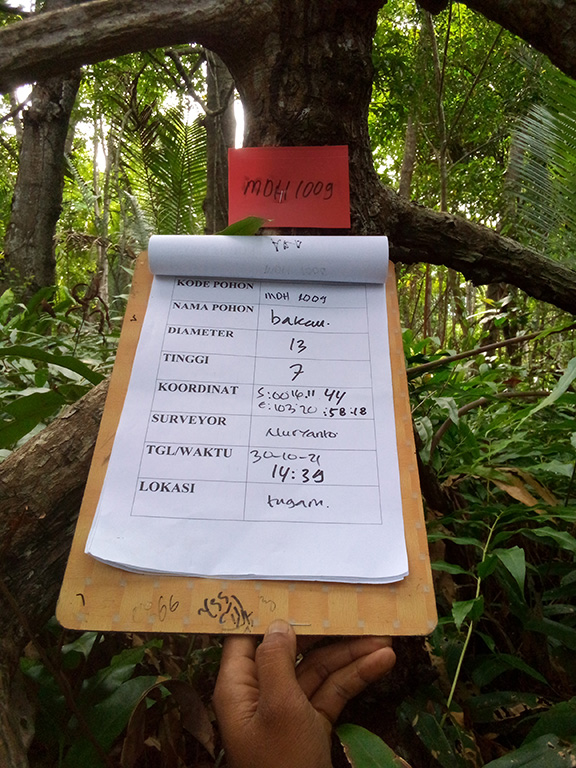 MDH 1009
KODE POHON MDH 1009
NAMA POHON bakau.
DIAMETER 13
TINGGI 7
KOORDINAT S:0016.11 44
E:10320:58.18
SURVEYOR Nuryanto
TGL/WAKTU 30-10-21
14:39
LOKASI tugam.